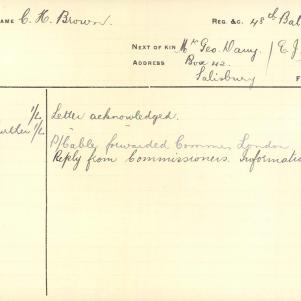 NAME C. H. Brown REG. &C. 48th Bat
NEXT OF KIN Mr Geo. / E. J.
ADDRESS Box 42.
Salisbury F
1/2 Letter acknowledged.
urther 1/2 " "
P/Cable forwarded Commrs London
Reply from Commissioners. Informatio